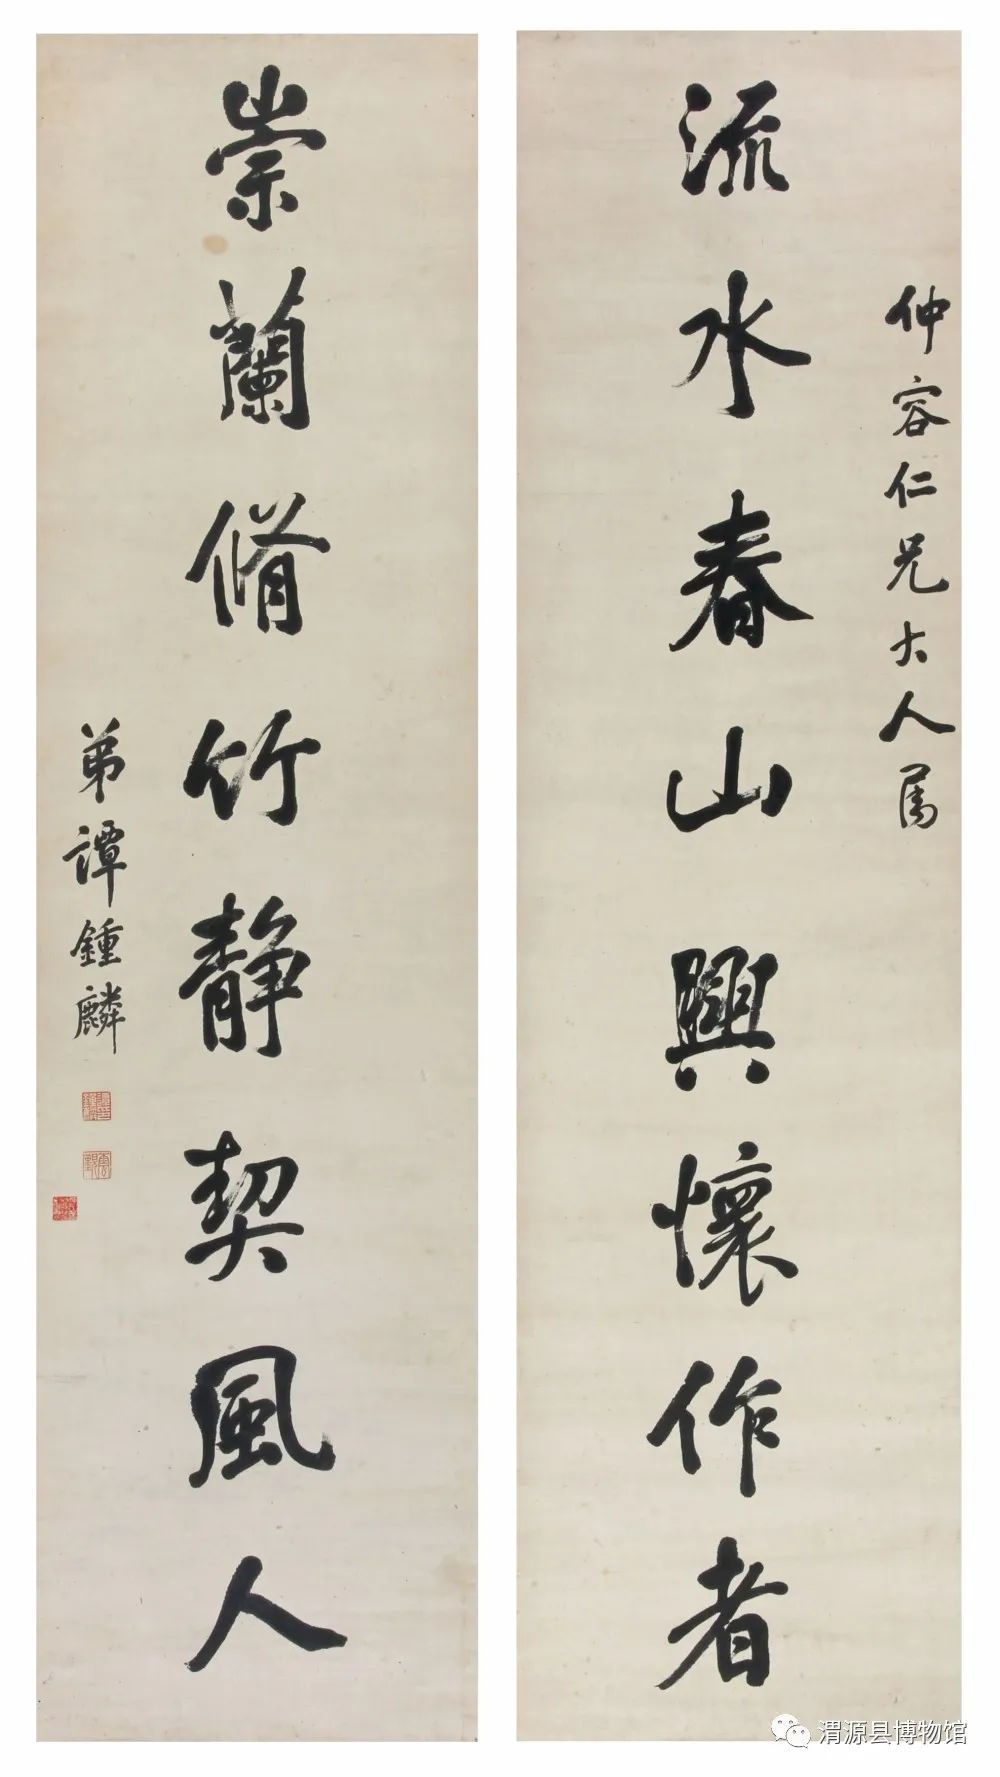 仲容仁兄大人属
流水春山興懷作者
崇蘭脩竹靜契風人
弟譚鍾麟
渭源县博物馆